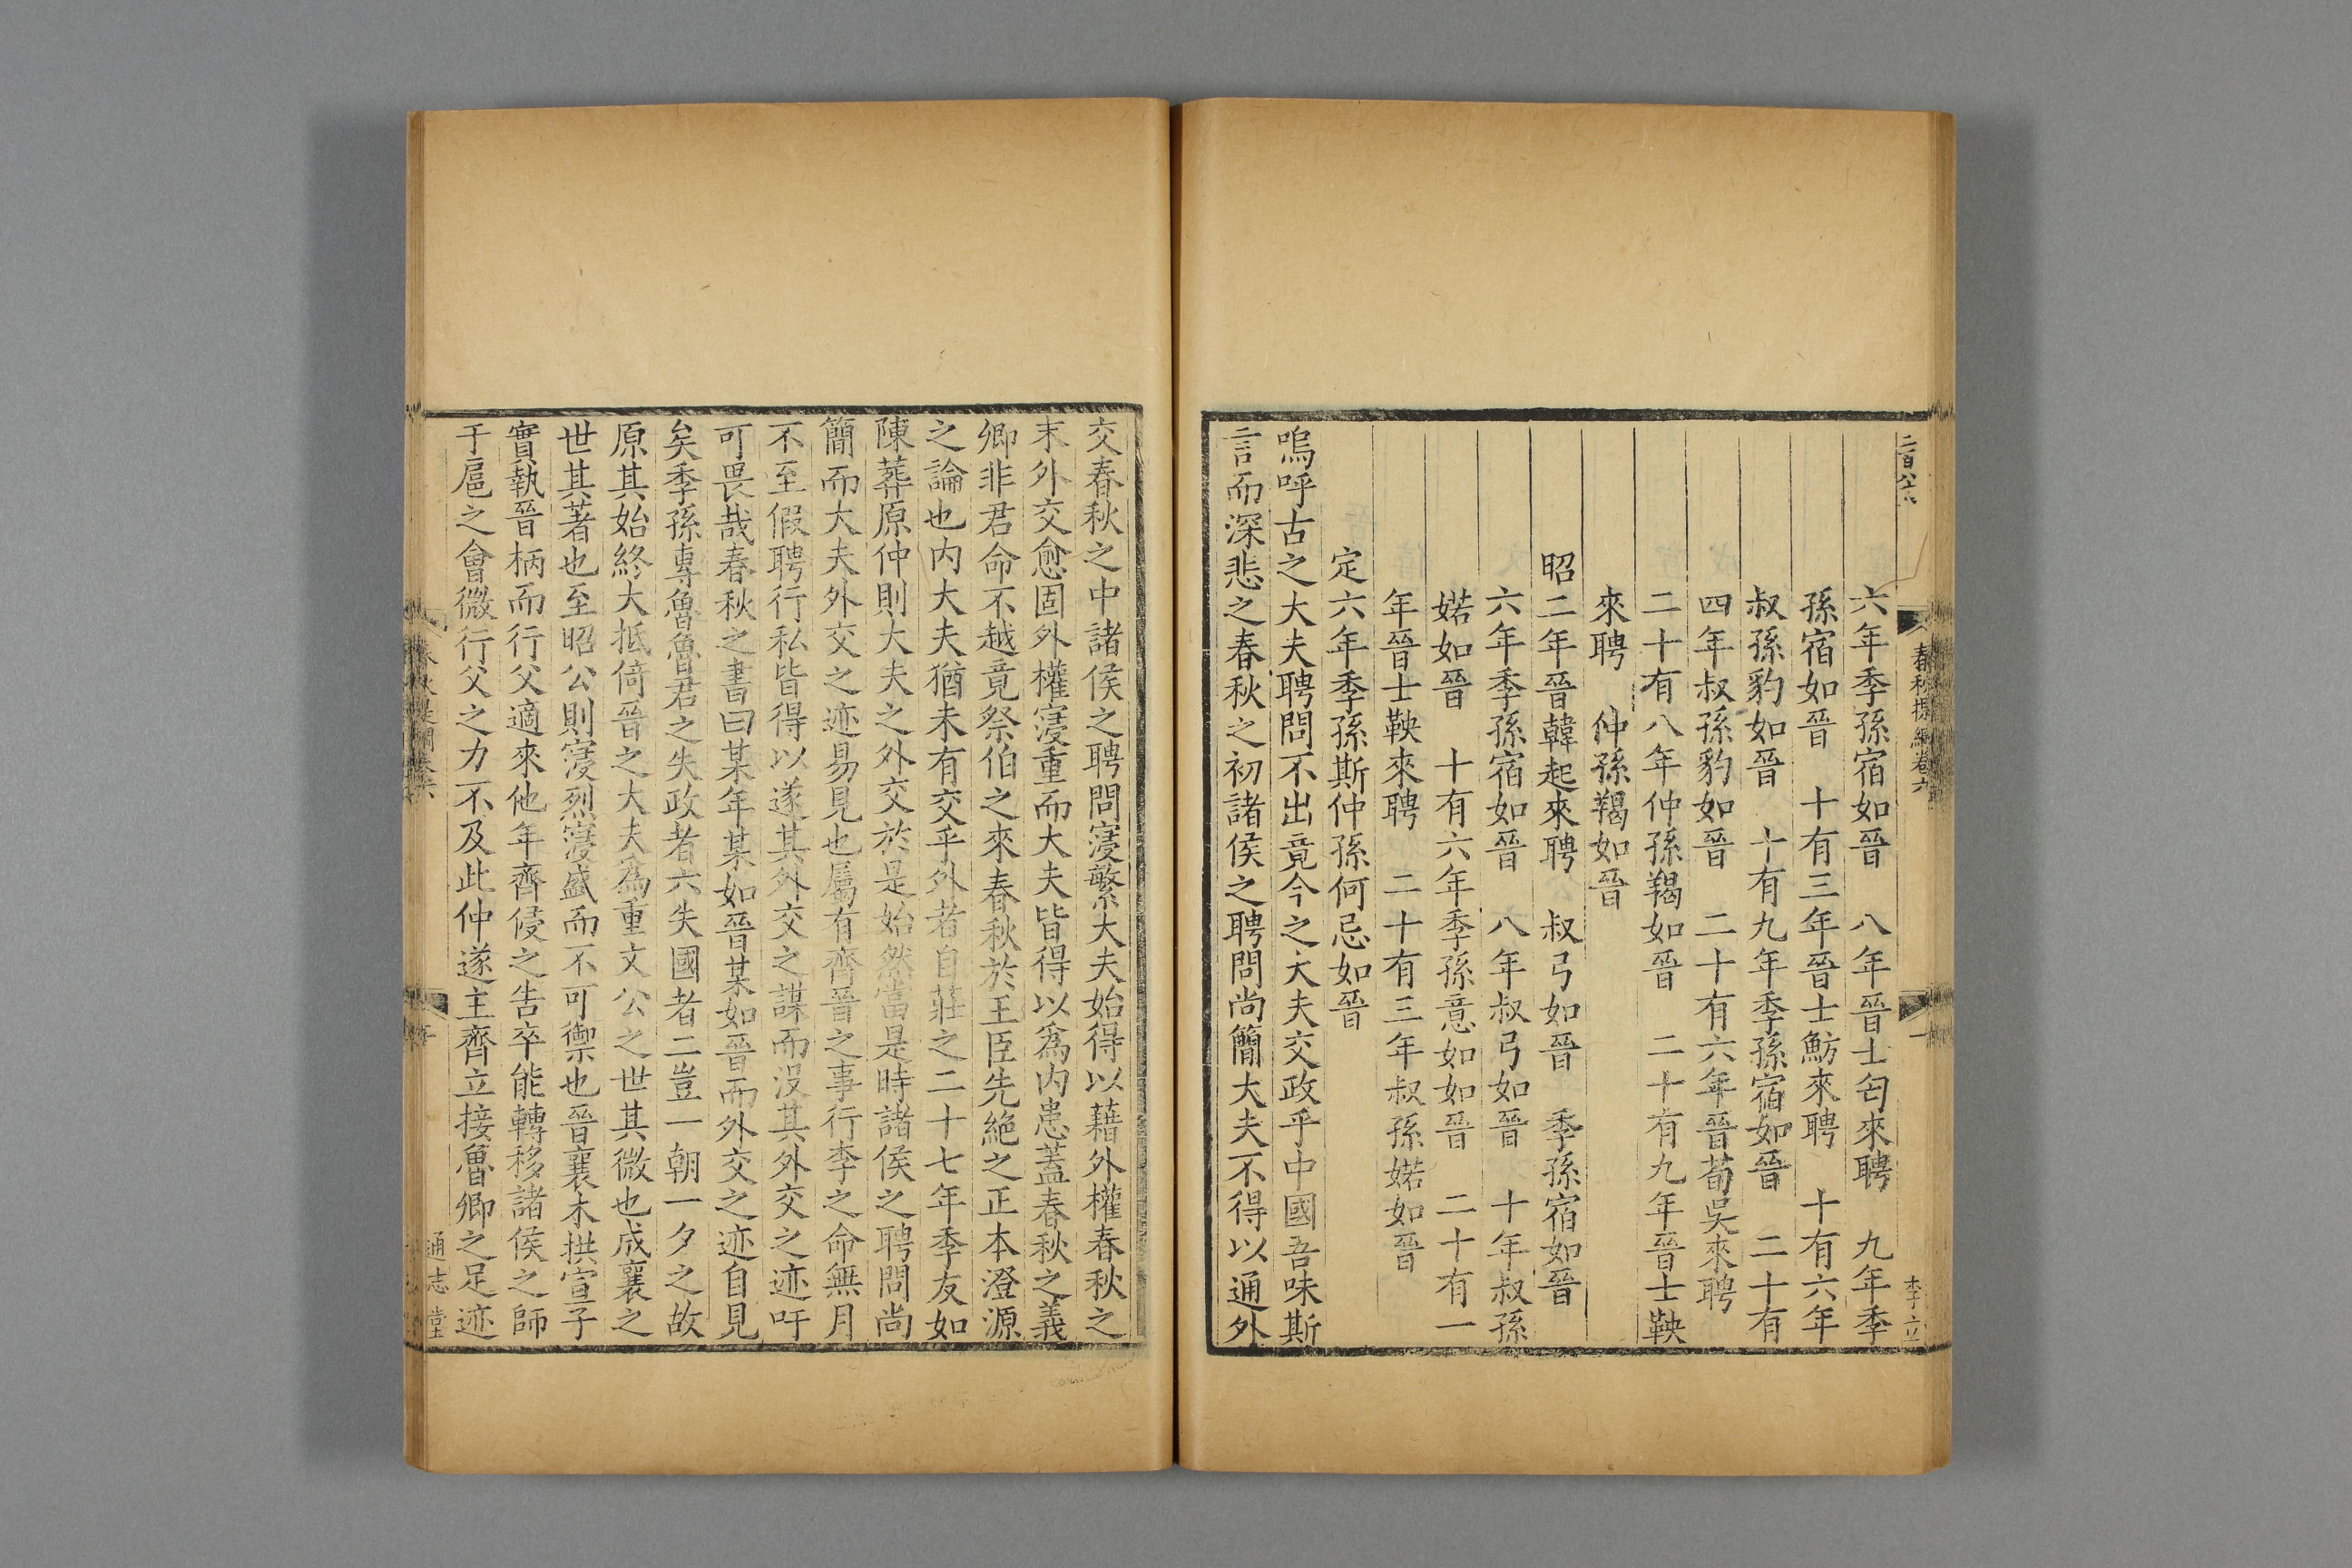 六年季孫宿如晉　八年晉士匄來聘　九年季
孫宿如晉　十有三年晉士魴來聘　十有六年
叔孫豹如晉　十有九年季孫宿如晉　二十有
四年叔孫豹如晉　二十有六年晉荀吳來聘
二十有八年仲孫羯如晉　二十有九年晉士鞅
來聘　仲孫羯如晉
昭二年晉韓起來聘　叔弓如晉　季孫宿如晉
六年季孫宿如晉　八年叔弓如晉　十年叔孫
婼如晉　十有六年季孫意如如晉　二十有一
年晉士鞅來聘　二十有三年叔孫婼如晉
定六年季孫斯仲孫何忌如晉
嗚呼古之大夫聘問不出竟今之大夫交政乎中國吾味斯
言而深悲之春秋之初諸侯之聘問尚簡大夫不得以通外
春秋提綱卷六
李立
交春秋之中諸侯之聘問寖繁大夫始得以藉外權春秋之
末外交愈固外權寖重而大夫皆得以為內患蓋春秋之義
卿非君命不越竟祭伯之來春秋於王臣先絶之正本澄源
之論也內大夫猶未有交乎外者自莊之二十七年季友如
陳葬原仲則大夫之外交於是始然當是時諸侯之聘問尚
簡而大夫外交之迹易見也屬有齊晉之事行李之命無月
不至假聘行私皆得以遂其外交之謀而沒其外交之迹吁
可畏哉春秋之書曰某年某如晉某如晉而外交之迹自見
矣季孫專魯魯君之失政者六失國者二豈一朝一夕之故
原其始終大抵倚晉之大夫為重文公之世其微也成襄之
世其著也至昭公則寖烈寖盛而不可禦也晉襄木拱宣子
實執晉柄而行父適來他年齊侵之告卒能轉移諸侯之師
于扈之會微行父之力不及此仲遂主齊立接魯卿之足迹
通志堂